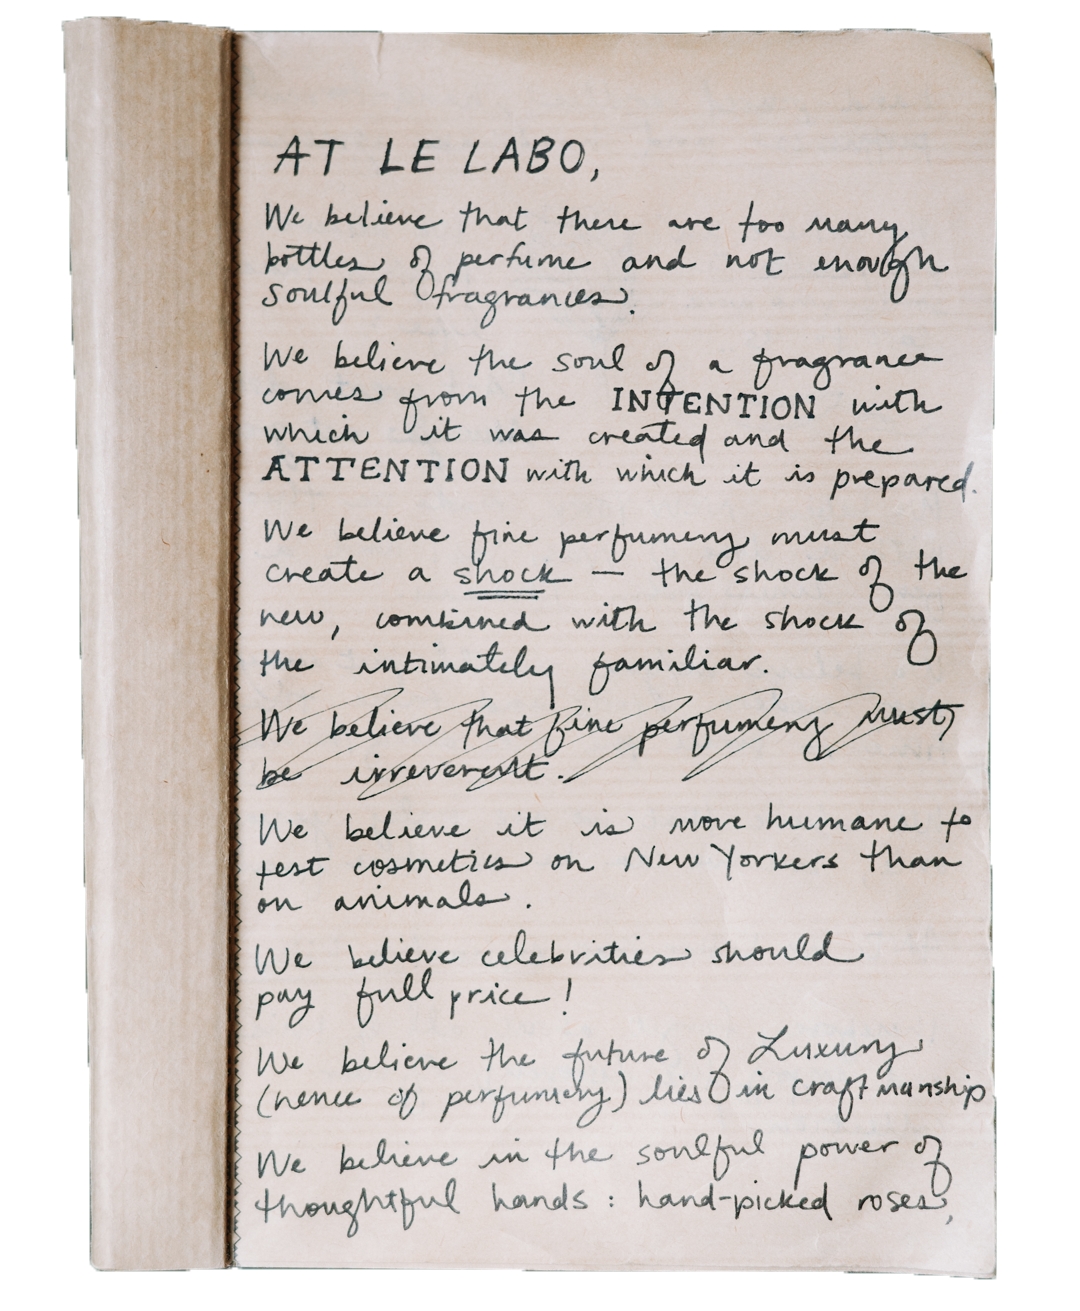 AT LE LABO,
We believe that there are too many
bottles of perfume and not enough
soulful fragrances.
We believe the soul of a fragrance
comes from the INTENTION with
which it was created and the
ATTENTION with which it is prepared.
We believe fine perfumery must
create a shock — the shock of the
new, combined with the shock of
the intimately familiar.
We believe that fine perfumery must
be irreverent.
We believe it is more humane to
test cosmetics on New Yorkers than
on animals.
We believe celebrities should
pay full price!
We believe the future of Luxury
(hence of perfumery) lies in craftmanship
We believe in the soulful power of
thoughtful hands: hand-picked roses,